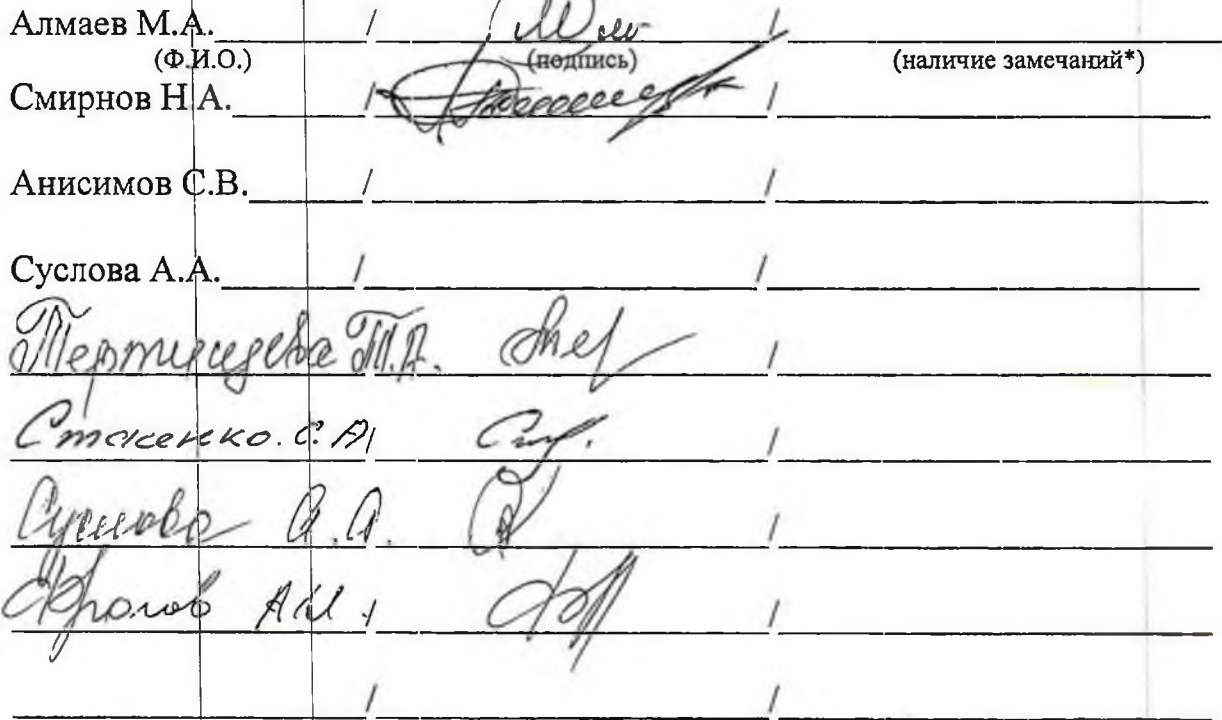 Алмаев М.А. / /
(Ф.И.О.) (подпись) (наличие замечаний*)
Смирнов Н.А. / /
Анисимов С.В. / /
Суслова А.А. / /
Т.А. /
Стасенко. С. А/ /
Суслова А.А. /
Фролов А.И. / /
/ /